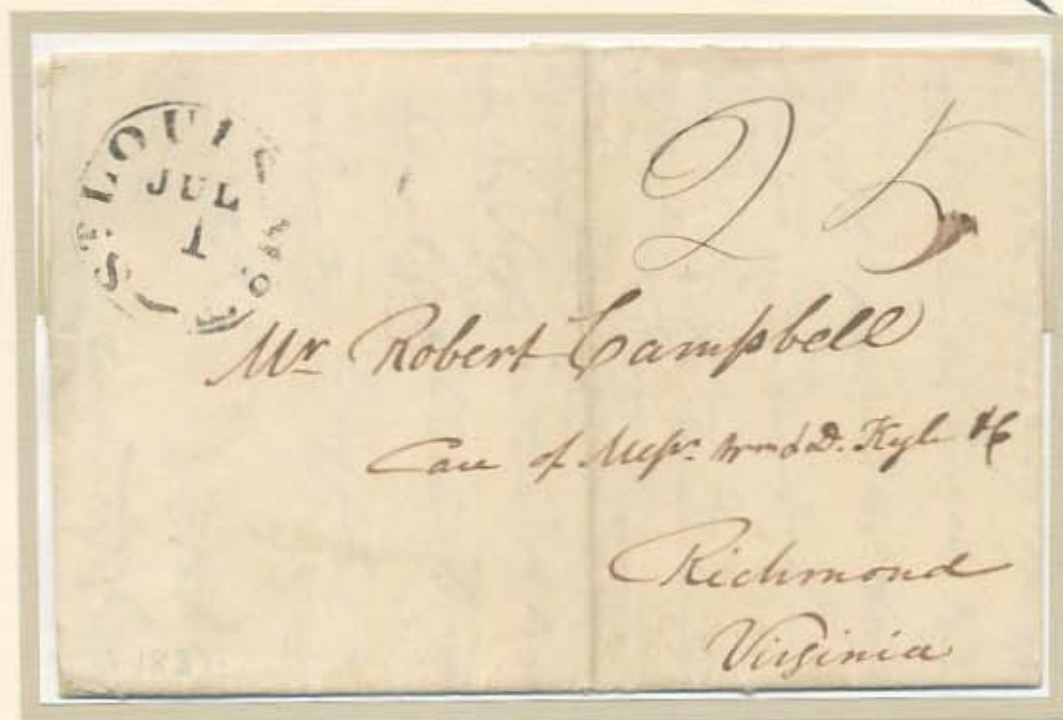 ST. LOUIS Mo.
JUL
1
25
Mr Robert Campbell
Care of Messrs. Wm & D. Kyle & C
Richmond
Virginia